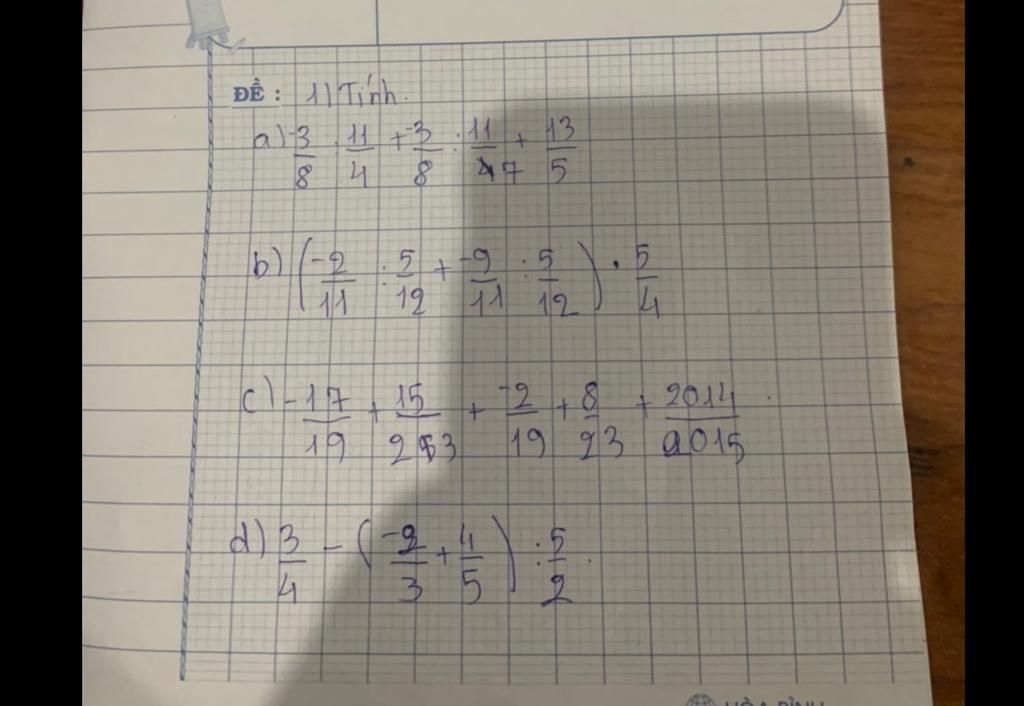 ĐỀ: 1) Tính.
a) -3/8 . 11/4 + -3/8 . 11/7 + 13/5
b) (-2/11 : 5/12 + -9/11 : 5/12) . 5/4
c) -17/19 + 15/23 + -2/19 + 8/23 + 2014/2015
d) 3/4 - (-2/3 + 4/5) : 5/2
HÒA BÌNH